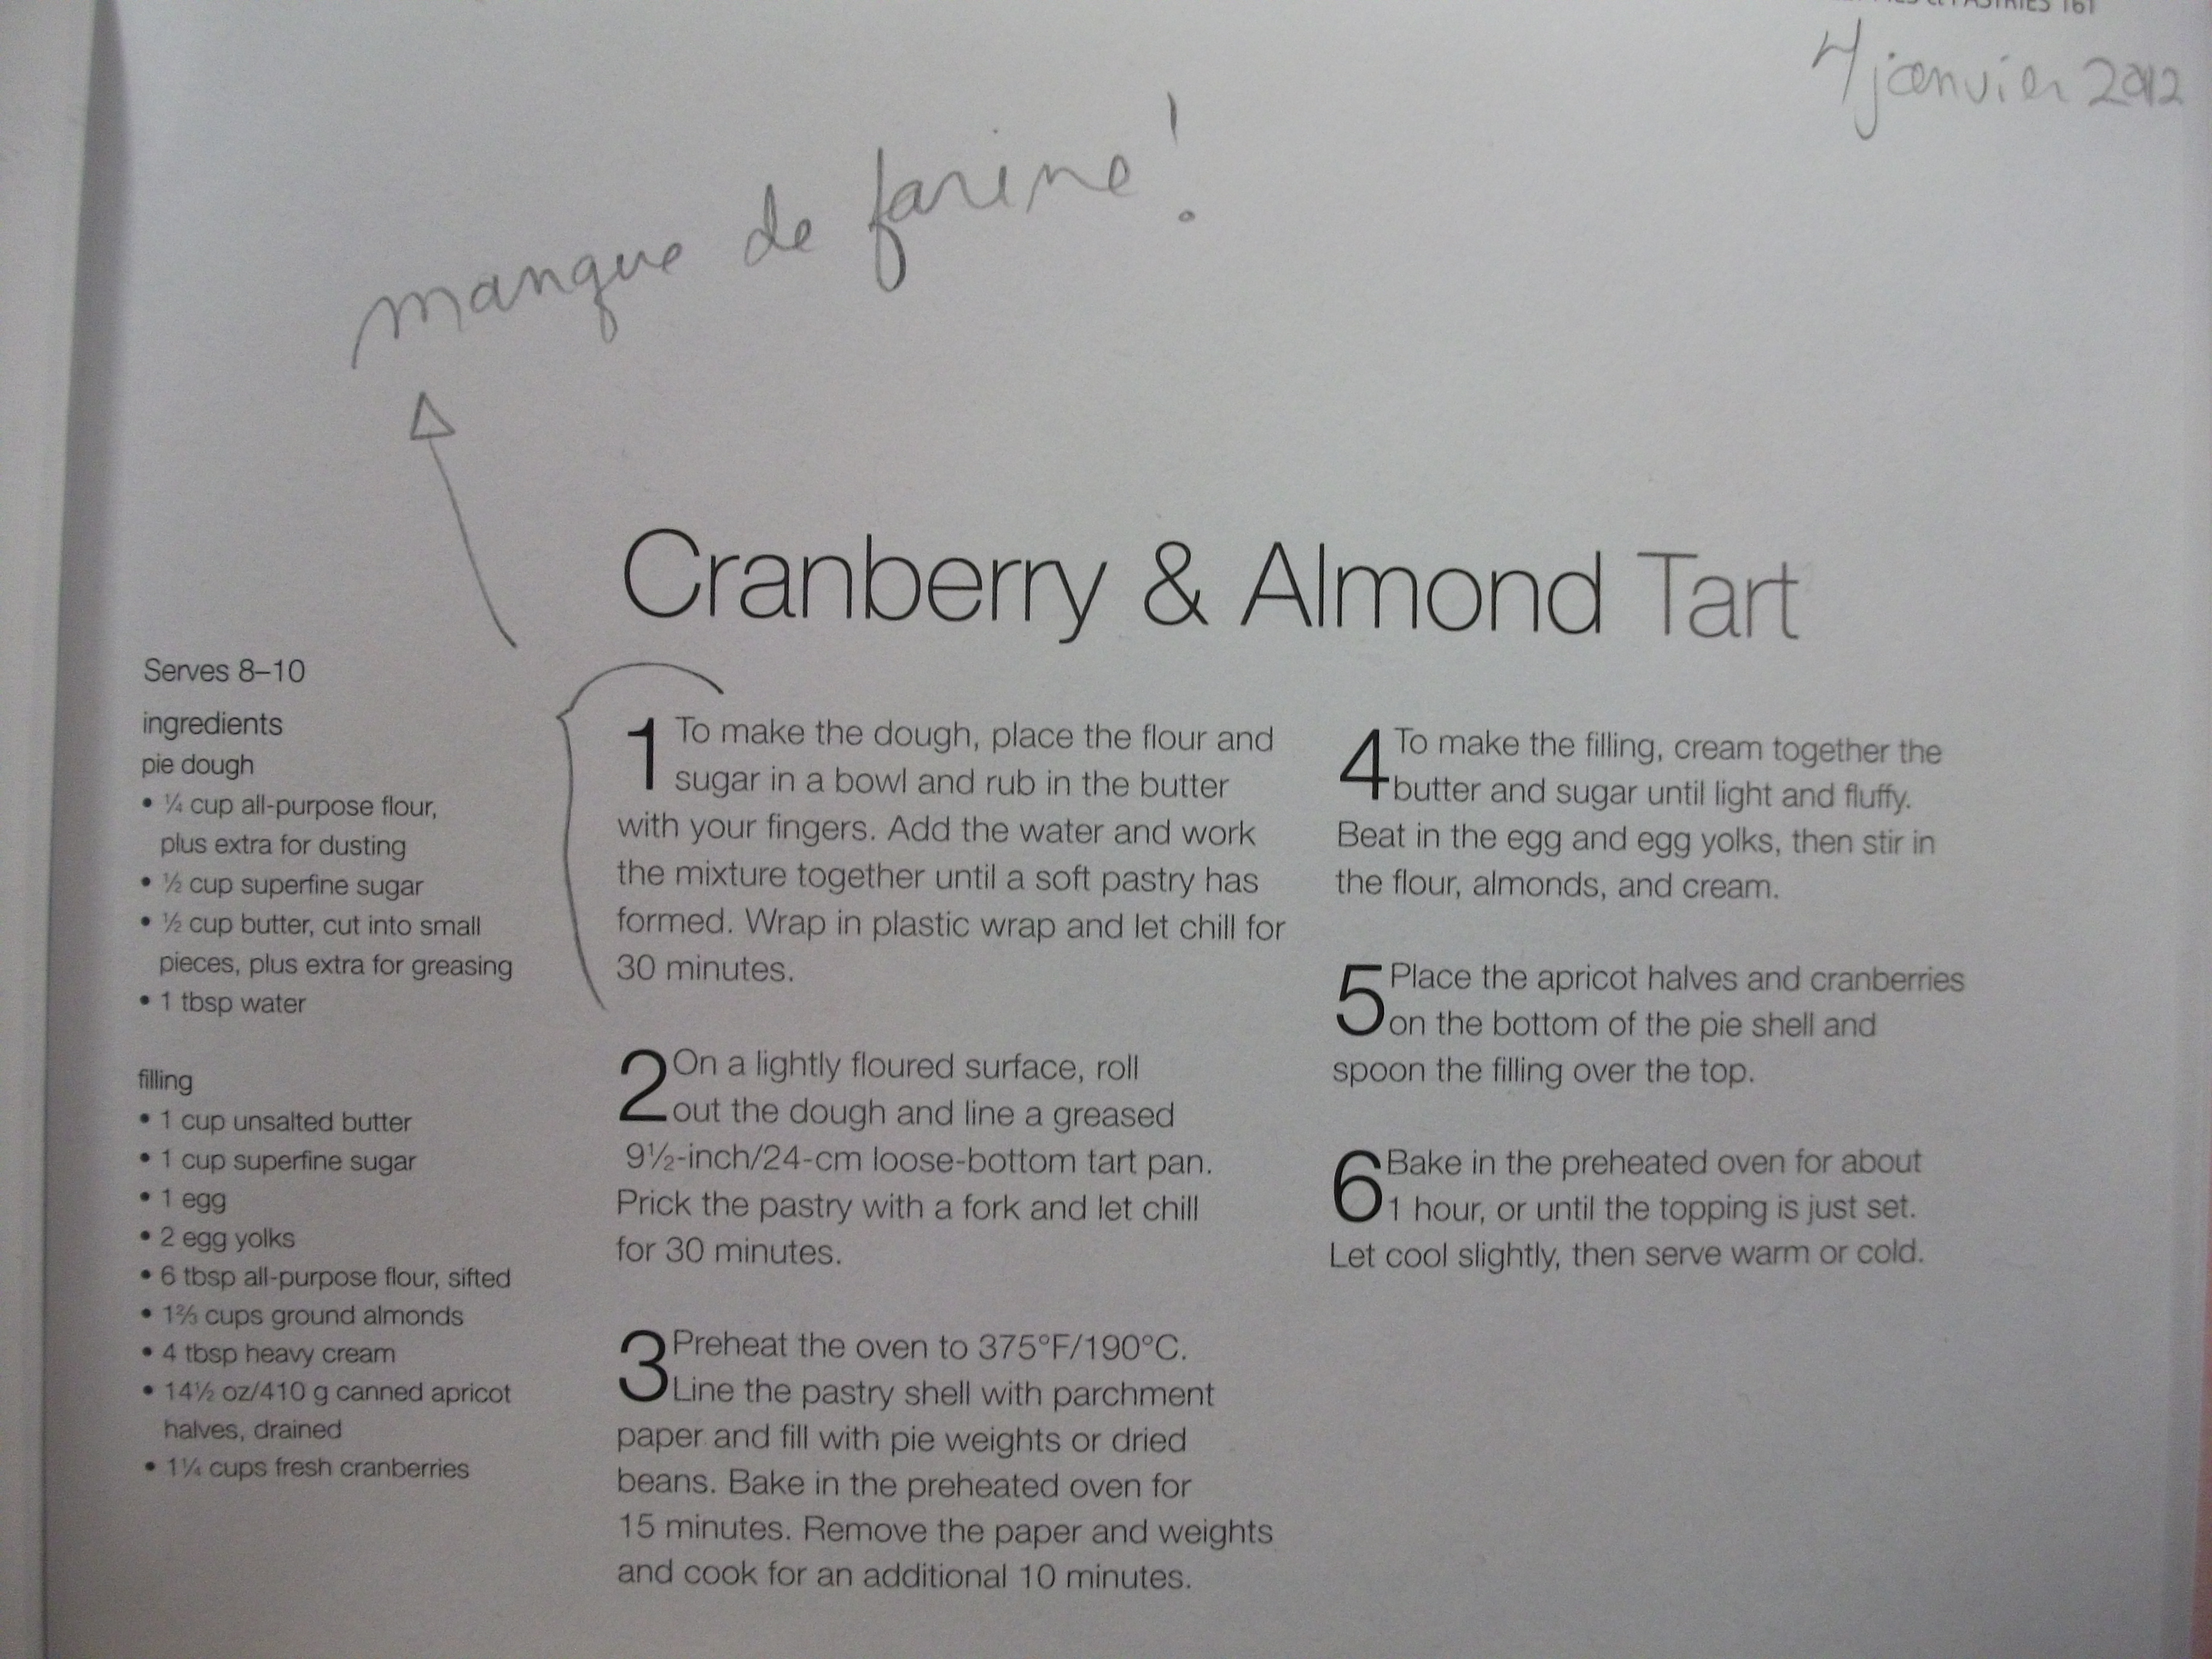 PASTRIES 161
4 janvier 2012
manque de farine!
Cranberry & Almond Tart
Serves 8–10
ingredients
pie dough
• ¼ cup all-purpose flour,
plus extra for dusting
• ½ cup superfine sugar
• ½ cup butter, cut into small
pieces, plus extra for greasing
• 1 tbsp water
filling
• 1 cup unsalted butter
• 1 cup superfine sugar
• 1 egg
• 2 egg yolks
• 6 tbsp all-purpose flour, sifted
• 1⅔ cups ground almonds
• 4 tbsp heavy cream
• 14½ oz/410 g canned apricot
halves, drained
• 1¼ cups fresh cranberries
1 To make the dough, place the flour and
sugar in a bowl and rub in the butter
with your fingers. Add the water and work
the mixture together until a soft pastry has
formed. Wrap in plastic wrap and let chill for
30 minutes.
2 On a lightly floured surface, roll
out the dough and line a greased
9½-inch/24-cm loose-bottom tart pan.
Prick the pastry with a fork and let chill
for 30 minutes.
3 Preheat the oven to 375°F/190°C.
Line the pastry shell with parchment
paper and fill with pie weights or dried
beans. Bake in the preheated oven for
15 minutes. Remove the paper and weights
and cook for an additional 10 minutes.
4 To make the filling, cream together the
butter and sugar until light and fluffy.
Beat in the egg and egg yolks, then stir in
the flour, almonds, and cream.
5 Place the apricot halves and cranberries
on the bottom of the pie shell and
spoon the filling over the top.
6 Bake in the preheated oven for about
1 hour, or until the topping is just set.
Let cool slightly, then serve warm or cold.